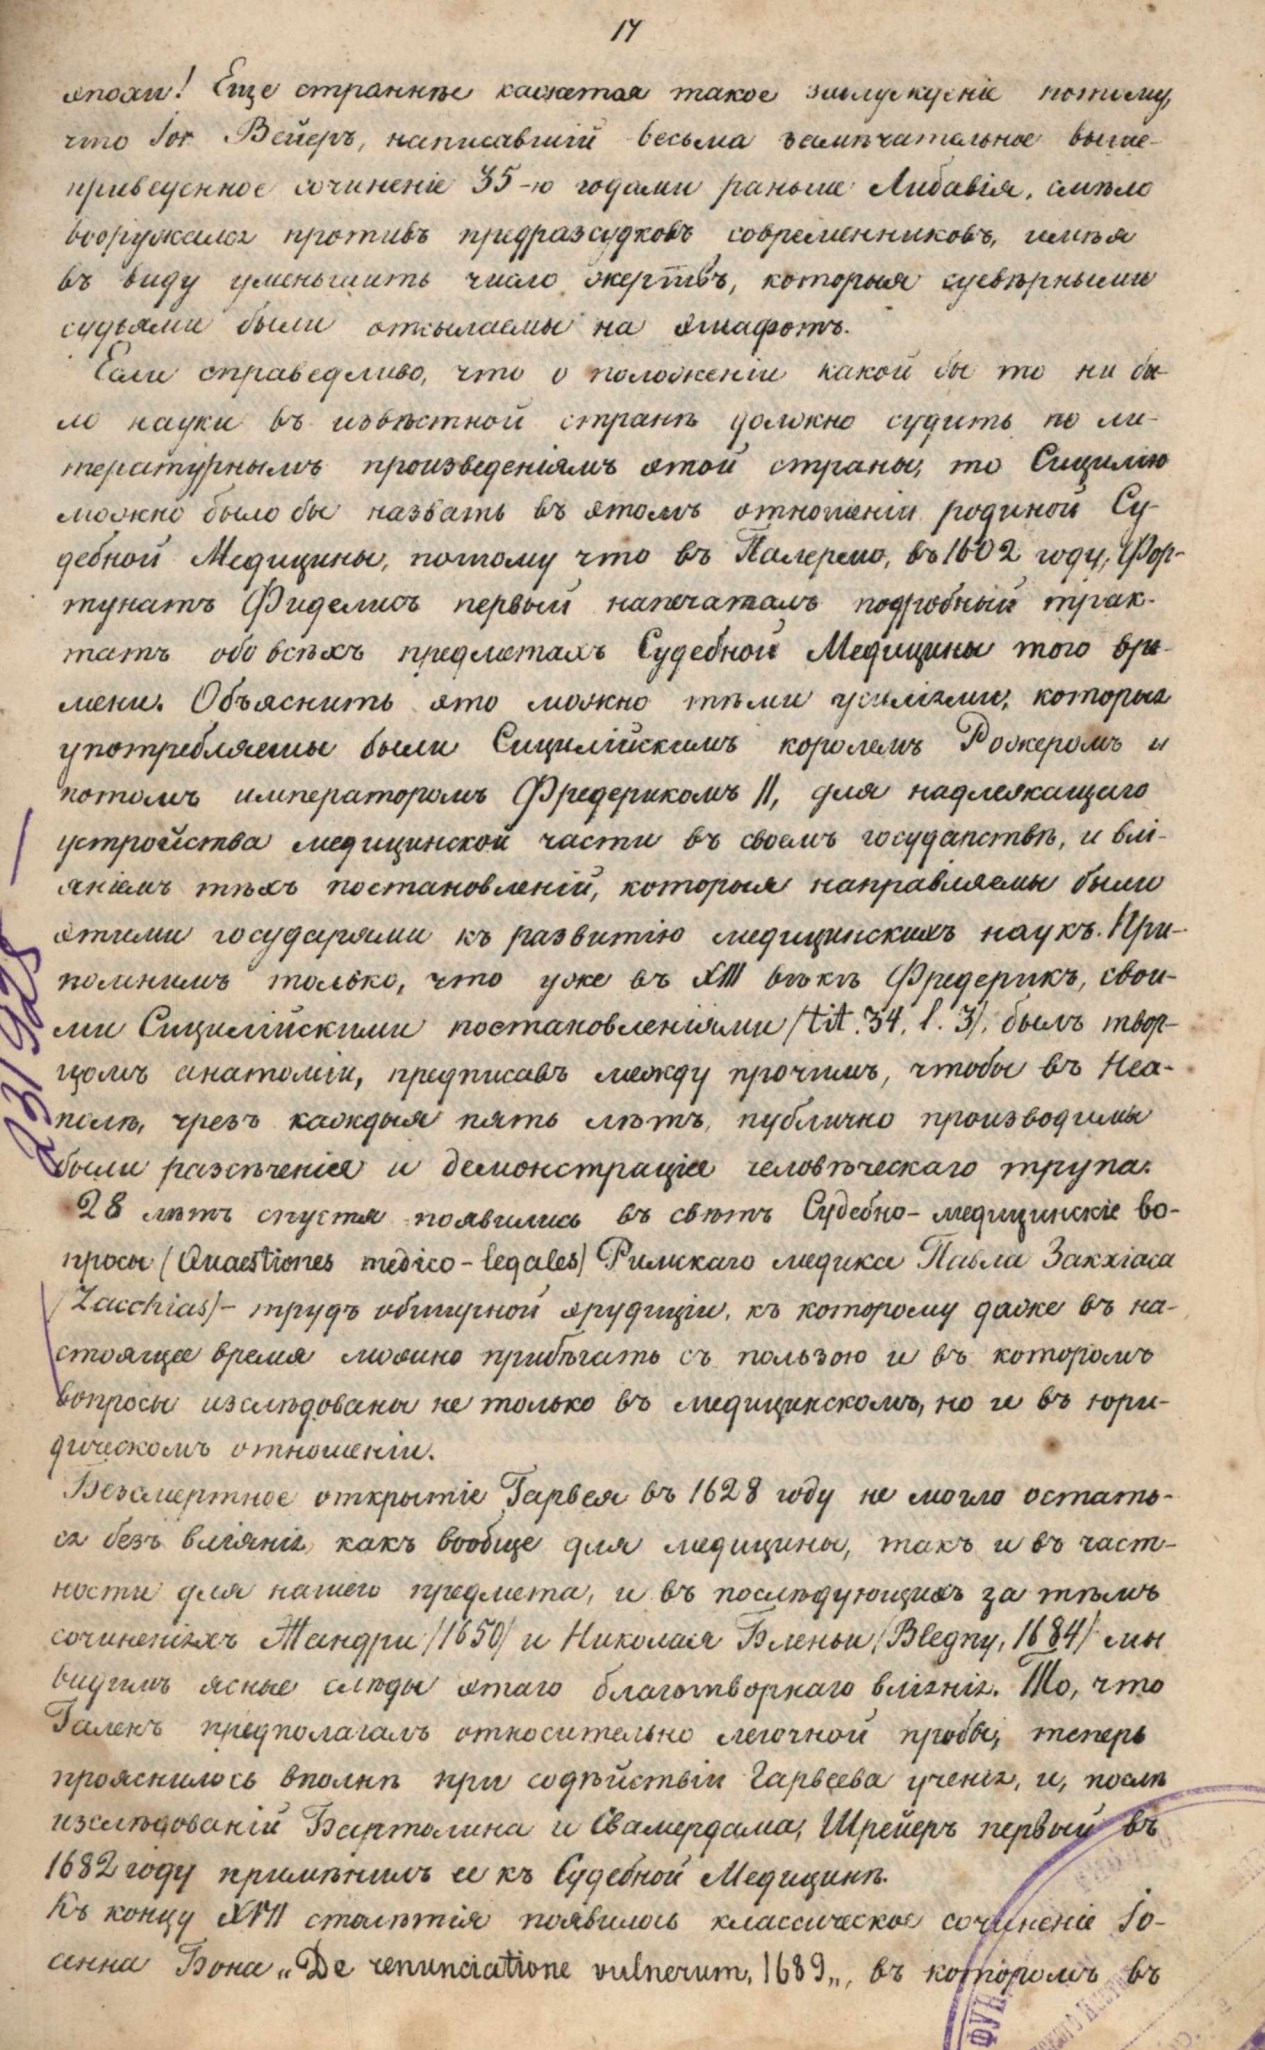 17
эпохи! Еще страннѣе кажется такое заблужденіе потому,
что Іог Вейеръ, написавшій весьма замѣчательное выше-
приведенное сочиненіе 35-ю годами раньше Либавія, смѣло
вооружался противъ предразсудковъ современниковъ, имѣя
въ виду уменьшить число жертвъ, которыя суевѣрными
судьями были отсылаемы на эшафотъ.
Если справедливо, что о положеніи какой бы то ни бы-
ло науки въ извѣстной странѣ должно судить по ли-
тературнымъ произведеніямъ этой страны, то Сицилію
можно было бы назвать въ этомъ отношеніи родиной Су-
дебной Медицины, потому что въ Палермо, въ 1602 году, Фор-
тунатъ Фиделисъ первый напечаталъ подробный трак-
татъ обо всѣхъ предметахъ Судебной Медицины того вре-
мени. Объяснить это можно тѣми усиліями, которыя
употребляемы были Сицилійскимъ королемъ Рожеромъ и
потомъ императоромъ Фредерикомъ II, для надлежащаго
устройства медицинской части въ своемъ государствѣ, и влі-
яніемъ тѣхъ постановленій, которыя направляемы были
этими государями къ развитію медицинскихъ наукъ. При-
помнимъ только, что уже въ XIII вѣкѣ Фредерикъ, свои-
ми Сицилійскими постановленіями (tit. 34. l. 3), былъ твор-
цомъ анатоміи, предписавъ между прочимъ, чтобы въ Неа-
полѣ, чрезъ каждыя пять лѣтъ, публично производимы
были разсѣченія и демонстраціи человѣческаго трупа.
28 лѣтъ спустя появились въ свѣтъ Судебно-медицинскіе во-
просы (Quaestiones medico-legales) Римскаго медика Павла Закхіаса
(Zacchias) – трудъ обширной эрудиціи, къ которому даже въ на-
стоящее время можно прибѣгать съ пользою и въ которомъ
вопросы изслѣдованы не только въ медицинскомъ, но и въ юри-
дическомъ отношеніи.
Безсмертное открытіе Гарвея въ 1628 году не могло остать-
ся безъ вліянія какъ вообще для медицины, такъ и въ част-
ности для нашего предмета, и въ послѣдующихъ за тѣмъ
сочиненіяхъ Жандри (1650) и Николая Бленьи (Bledny, 1684) мы
видимъ ясные слѣды этаго благотворнаго вліянія. То, что
Галенъ предполагалъ относительно легочной пробы, теперь
прояснилось вполнѣ при содѣйствіи Гарвеева ученія, и, послѣ
изслѣдованій Бартолина и Свамердама, Шрейеръ первый въ
1682 году примѣнилъ ее къ Судебной Медицинѣ.
Къ концу XVII столѣтія появилось классическое сочиненіе Іо-
анна Бона „De renunciatione vulnerum, 1689„, въ которомъ въ
231925
ФУН